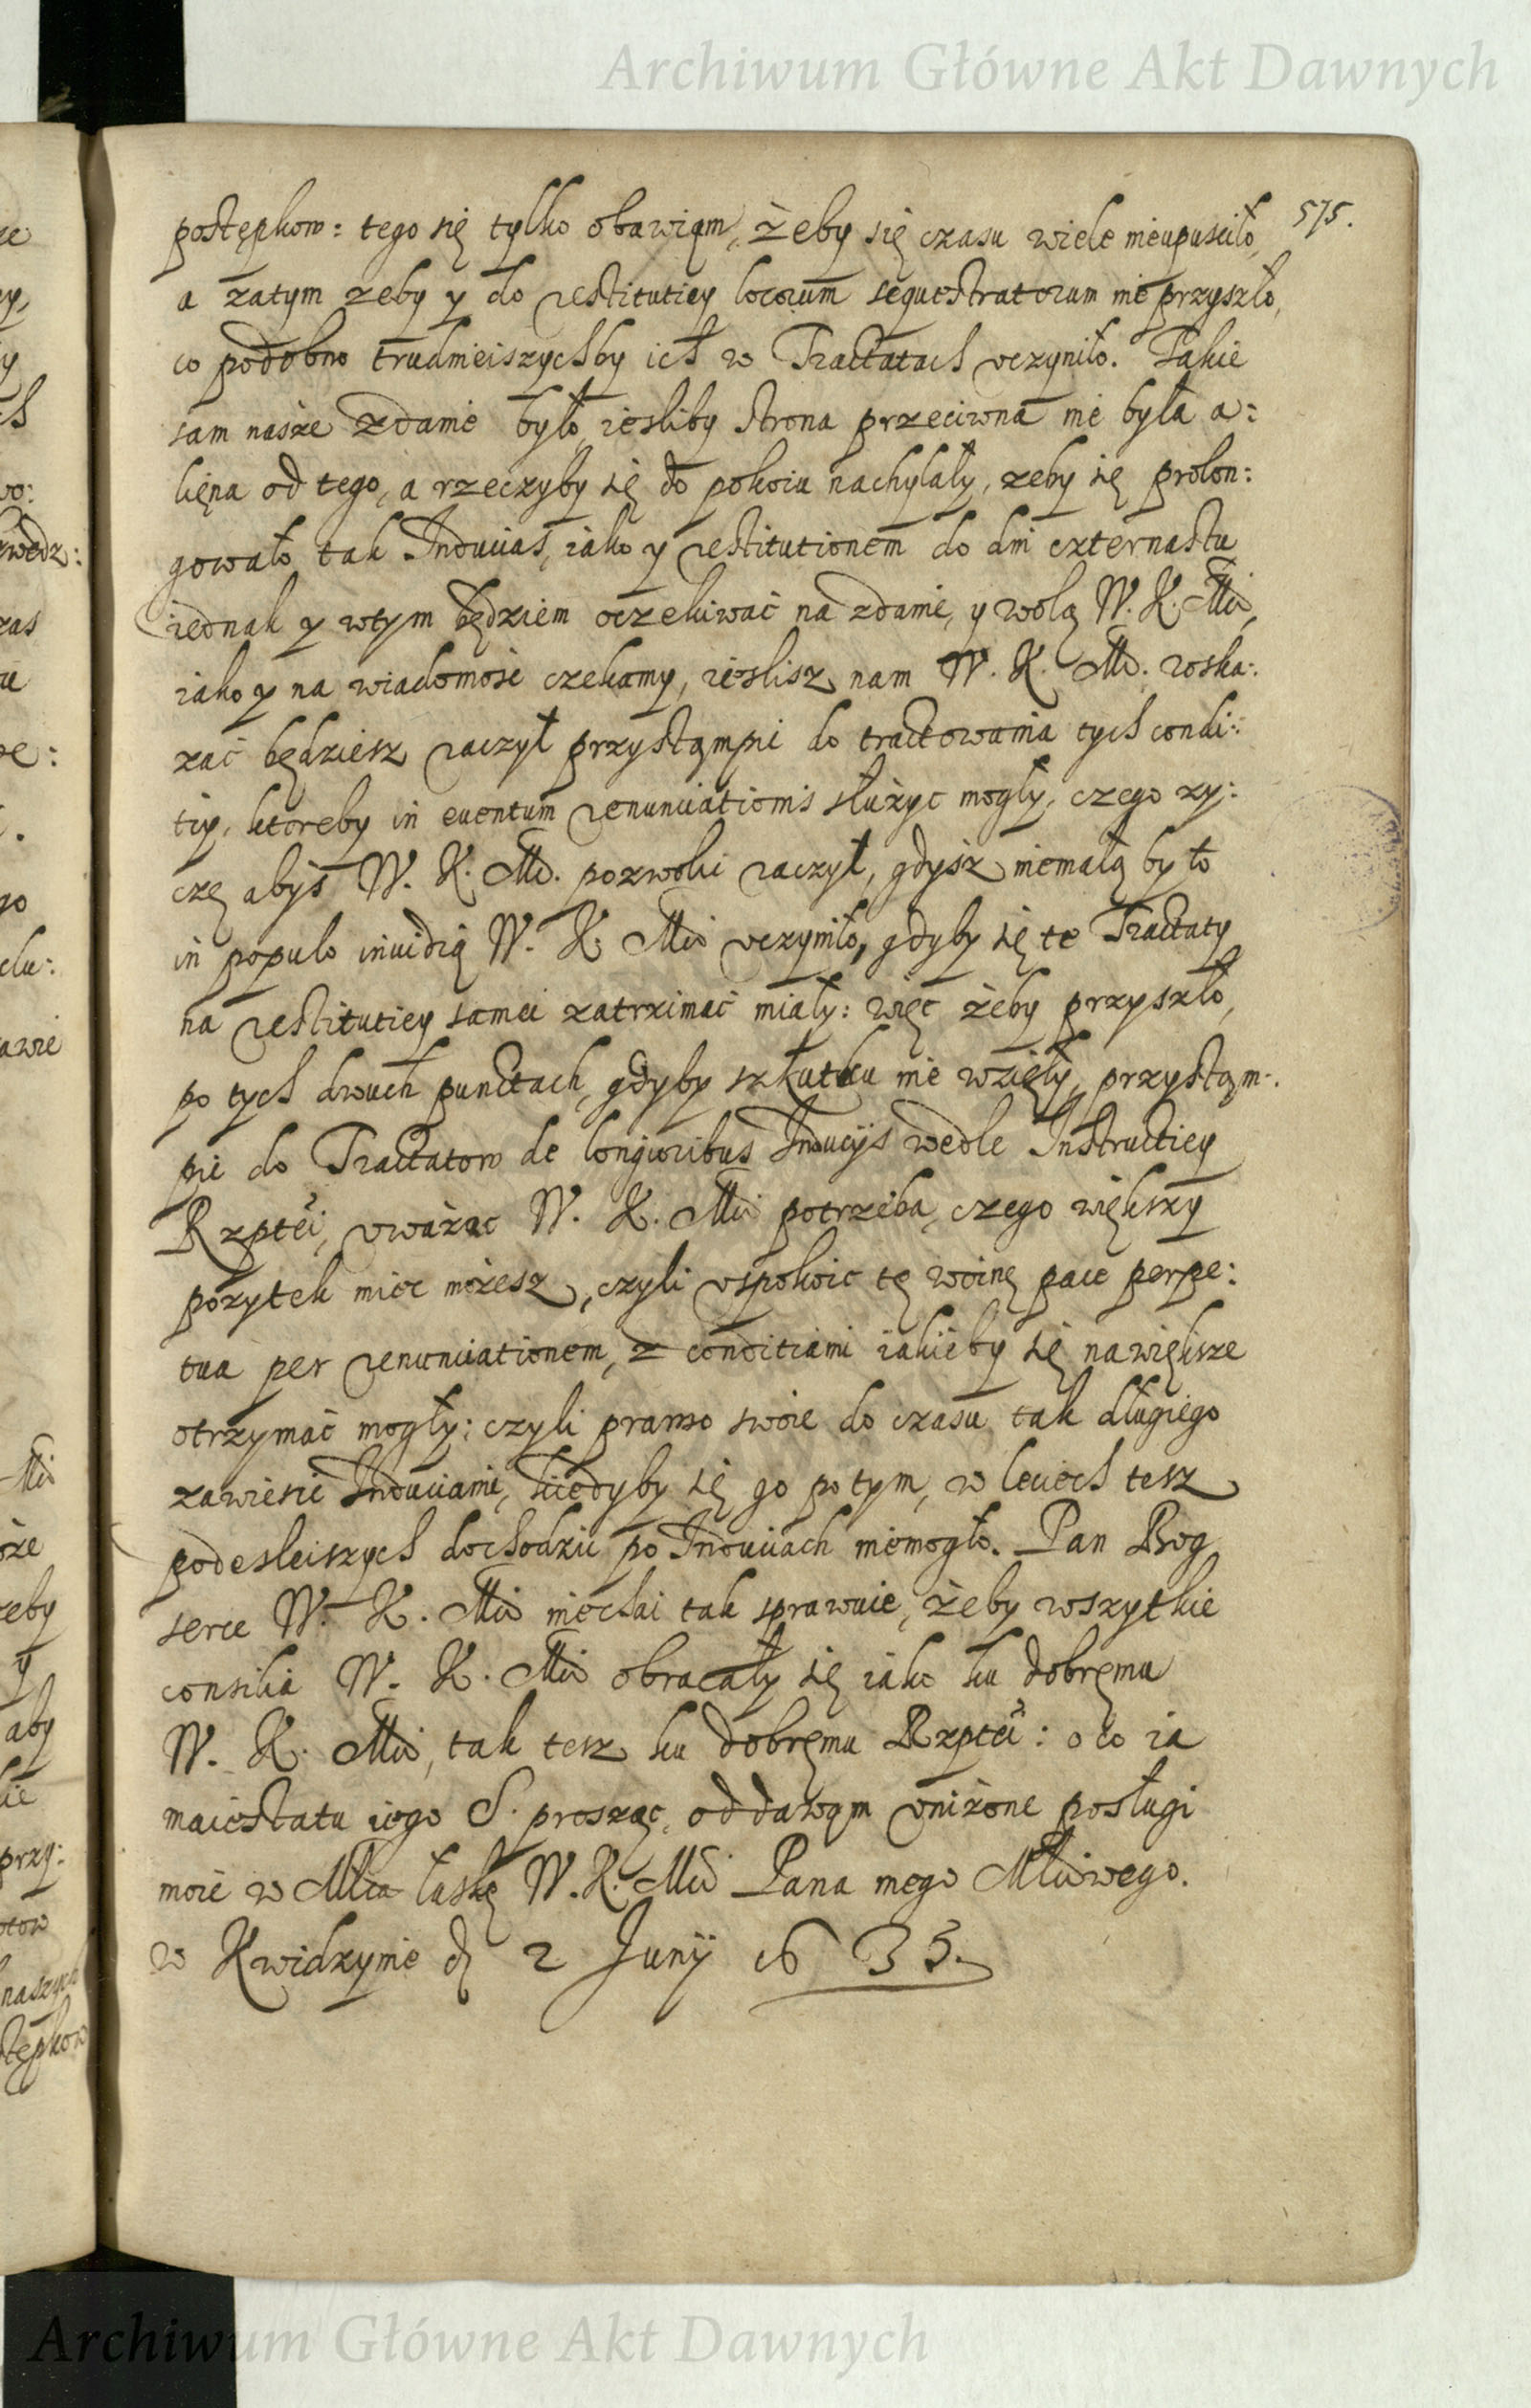 Archiwum Główne Akt Dawnych
575.
postępkow: tego się tylko obawiąm, żeby się czasu wiele nieupusciło,
a zatym zeby y do restitutiey locorum sequestratorum nie przyszło,
co podobno trudnieiszychby ich w Tractatach vczyniło. Takie
sam nasze zdanie było, iesliby strona przeciwna nie była a:
lięna od tego, a rzeczyby się do pokoiu nachylały, zeby się prolon:
gowało tak Inducias, iako y restitutionem do dni czternastu
iednak y wtym będziem oczekiwać na zdanie, y wolą W. K. Mći,
iako y na wiadomosc czekamy, ieslisz nam W. K. Mć. roska:
zać będziesz raczył przystąmpić do tractowania tych condi:
tiy, ktoreby in euentum renunciationis słuzyc mogły, czego zy:
czę abyś W. K. Mć. pozwolic raczył, gdysz niemałą by to
in populo inuidią W. K. Mći vczyniło, gdyby się te Tractaty
na restitutiey samei zatrzimać miały: więc żeby przyszło,
po tych dwuch punctach, gdyby szkutku nie wzięły, przystąm:
pić do Tractatow de longioribus Inducijs wedle Instructiey
Rzptći, vważac W. K. Mći potrzeba, czego większy
pozytek miec możesz, czyli vspokoic tę woinę pace perpe:
tua per renunciationem, z conditiami iakieby się nawiększe
otrzymać mogły; czyli prawo swoie do czasu tak długiego
zawiesic Induciami, kiedyby się go potym, w leciech tesz
podesleiszych dochodzic po Induciach niemogło. Pan Bog
serce W. K. Mći niechai tak sprawuie, żeby wszytkie
consilia W. K. Mći obracały się iako ku dobręmu
W. K. Mći, tak tesz ku dobręmu Rzptći: o co ia
maiestatu iego S. prosząc, oddawąm vniżone posługi
moie w Mćią łaskę W. K. Mći Pana mego Mściwego.
w Kwidzynie d 2 Junij 1635.
Archiwum Główne Akt Dawnych